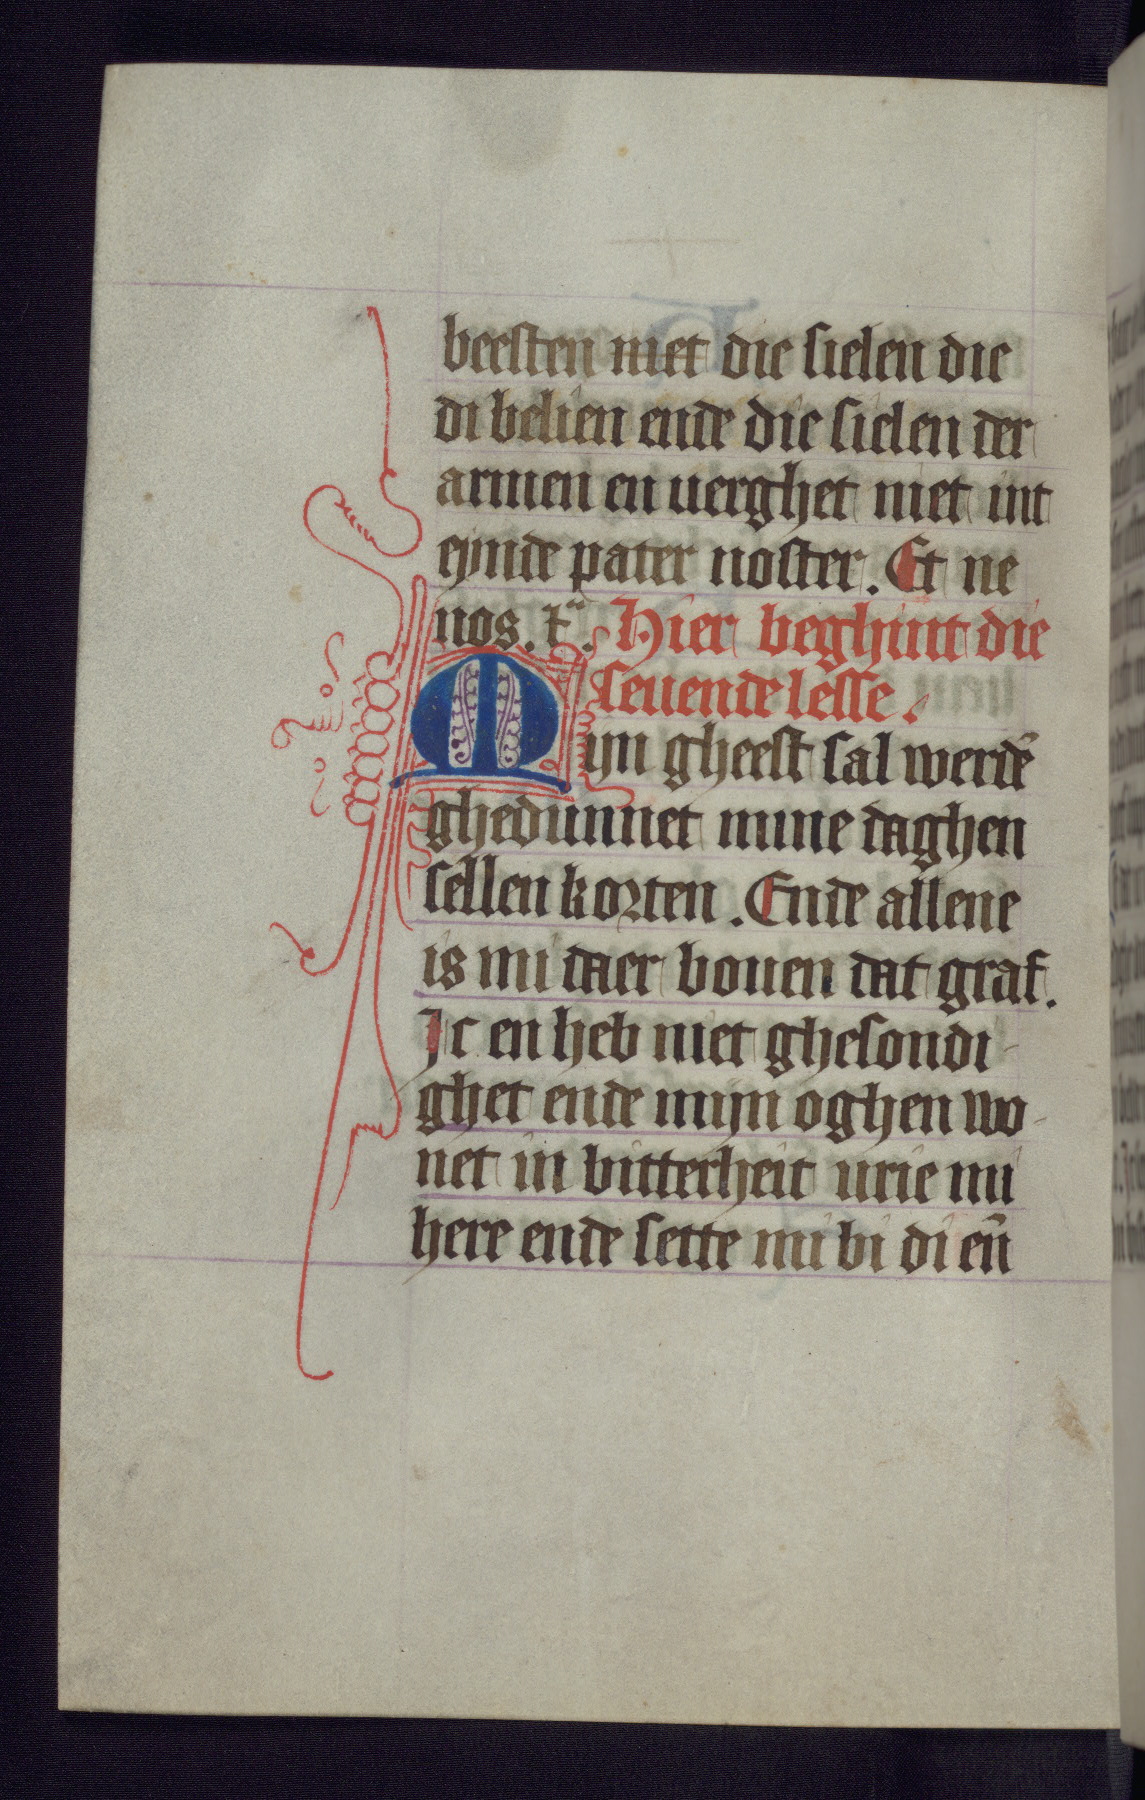 beesten niet die sielen die
di belien ende die sielen der
armen en uerghet niet int
eynde pater noster. Et ne
nos. tᵃ. Hier beghint die
seuende lesse.
Mijn gheest sal werdē
ghedunnet mine daghen
sellen korten. Ende allene
is mi daer bouen dat graf.
Ic en heb niet ghesondi-
ghet ende mijn oghen wo-
net in bitterheit urie mi
here ende sette mi bi di eñ